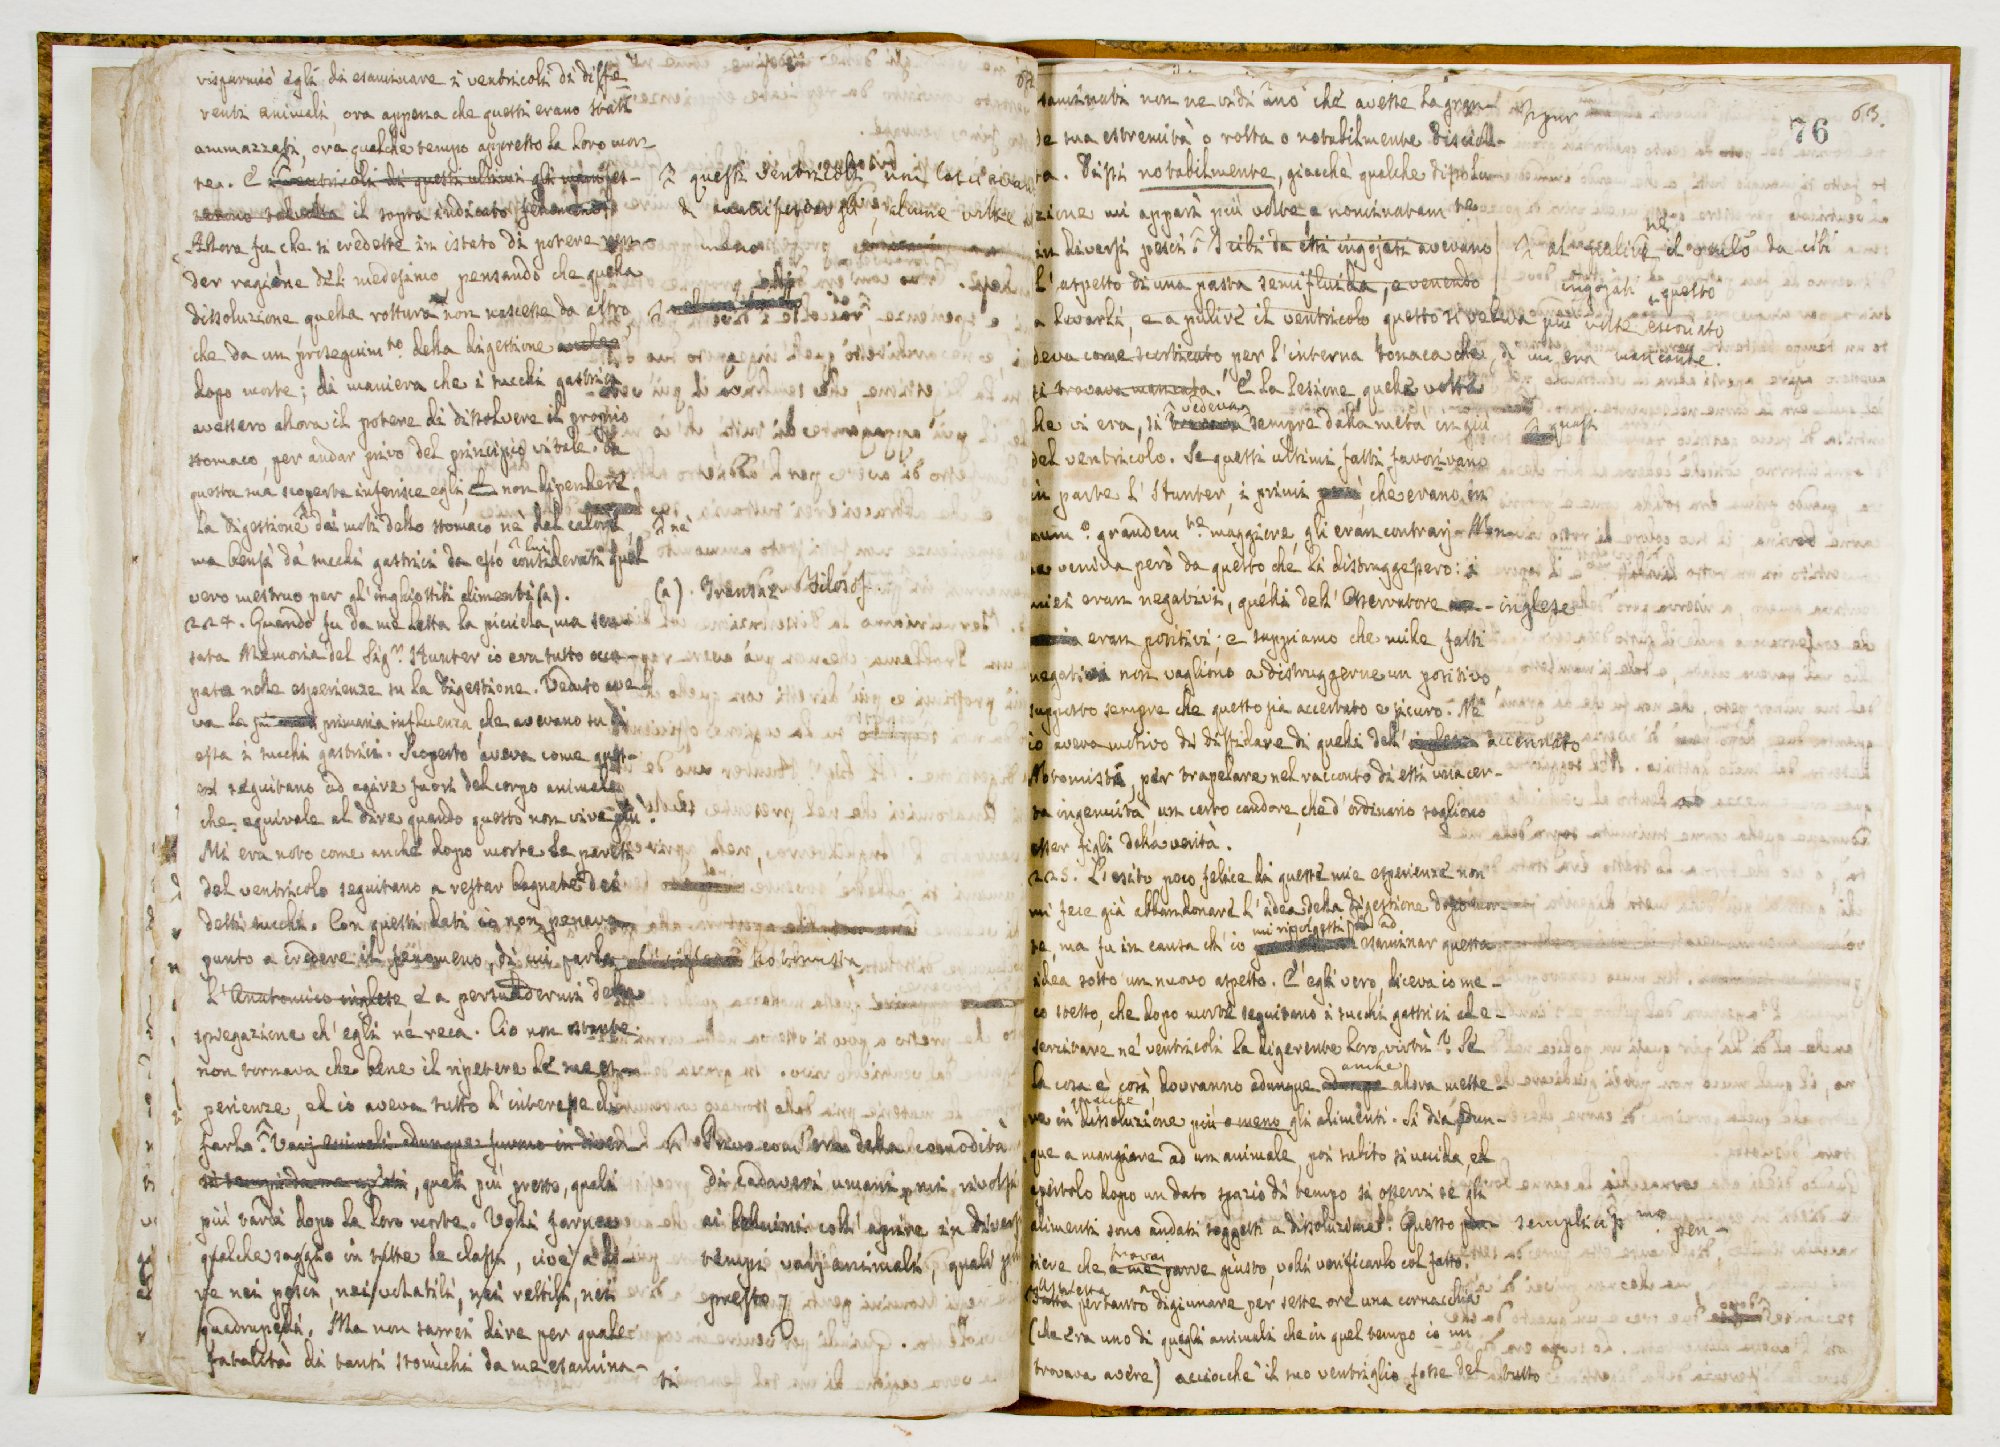 risparmiò egli di esaminare i ventricoli di diffe-
renti animali, ora appena che questi erano stati
ammazzati, ora qualche tempo appresso la loro mor-
te. E i ventricoli di questi ultimi gli
il sopra indicato fenomeno
Allora fu che si credette in istato di potere ren-
der ragione del medesimo, pensando che quella
dissoluzione quella rottura non nascesse da altro
che da un proseguim.to della digestione
dopo morte; di maniera che i succhi gastrici
avessero allora il potere di dissolvere il proprio
stomaco, per andar privo del principio vitale. Da
questa sua scoperta inferisce egli non dipendere
la digestione dai moti dello stomaco nè dal calore,
ma bensì da succhi gastrici da esso considerati qual
vero mestruo per gl'inghiottiti alimenti (a).
224. Quando fu da me letta la piccola, ma sen-
sata Memoria del Sig.r Hunter io era tutto occu-
pato nelle esperienze su la digestione. Veduto ave-
va la primaria influenza che avevano su di
essa i succhi gastrici. Scoperto aveva come quest-
i seguitano ad agire fuori del corpo animale
che equivale al dire quando questo non vive più.
Mi era noto come anche dopo morte le pareti
del ventricolo seguitano a restar bagnate dei
detti succhi. Con questi dati io non penava
punto a credere il fenomeno, di cui parla
l'Anatomico inglese e a persuadermi della
spiegazione ch'egli ne reca. Ciò non ostante
non tornava che bene il ripetere le sue es-
perienze, ed io aveva tutto l'interesse di
farlo. Varj animali adunque furono in diver-
si tempi da me uccisi, quali più presto, quali
più tardi dopo la loro morte. Volli farne
qualche saggio in tutte le classi, cioè a di-
re nei pesci, nei volatili, nei rettili, nei
quadrupedi. Ma non saprei dire per quale
fatalità di tanti stomachi da me esamina-
ti
questi ventricoli non lasciavan
di manifestargli, alcune volte
meno
nè
a lui
(a) Transaz. Filosof.
Notomista
Privo com'era della comodità
di cadaveri umani, mi rivolsi
ai belluini coll'aprire in diversi
tempi varj animali, quali più
presto
63.
76
saminati non ne vidi uno che avesse la gran-
de sua estremità o rotta o notabilmente disciol-
ta. Dissi notabilmente, giacchè qualche dissolu-
zione mi apparì più volte e nominatam.te
in diversi pesci. I cibi da essi ingojati avevano
l'aspetto di una pasta semifluida, e venendo
a levarli, e a pulire il ventricolo questo si ve-
deva come scorticato per l'interna tonaca che
si trovava mancata. E la lesione quelle volte
che vi era, si vedeva sempre dalla metà in giù
del ventricolo. Se questi ultimi fatti favorivano
in parte l'Hunter, i primi, che erano in
num.o grandem.te maggiore, gli eran contrarj. Non
ne veniva però da questo che li distruggessero: i
miei eran negativi, quelli dell'Osservatore inglese
eran positivi; e sappiamo che mille fatti
negativi non vagliono a distruggerne un positivo,
supposto sempre che questo sia accertato e sicuro. Nè
io aveva motivo di diffidare di quelli dell' accennato
Notomista, per trapelare nel racconto di essi una cer-
ta ingenuità, un certo candore, che d'ordinario sogliono
esser figli della verità.
225. L'esito poco felice di queste mie esperienze non
mi fece già abbandonare l'idea della digestione dopo mor-
te, ma fu in causa ch'io mi rivolgessi ad esaminar questa
idea sotto un nuovo aspetto. E' egli vero, diceva io me-
co stesso, che dopo morte seguitano i succhi gastrici ad e-
sercitare ne' ventricoli la digerente loro virtù? Se
la cosa è così, dovranno adunque anche allora mette-
re in qualche dissoluzione più o meno gli alimenti. Si dia adun-
que a mangiare ad un animale, poi subito si uccida, ed
apertolo dopo un dato spazio di tempo si osservi se gli
alimenti sono andati soggetti a dissoluzione. Questo semplicis.mo pen-
siere che trovai a me parve giusto, volli verificarlo col fatto.
Fatta pertanto digiunare per sette ore una cornacchia
(che era uno di quegli animali che in quel tempo io mi
trovava avere) acciocchè il suo ventriglio fosse del tutto
pur
nè
al pulire il vuoto da cibi
ingojati questo
più volte escoriato
mancante.
quasi